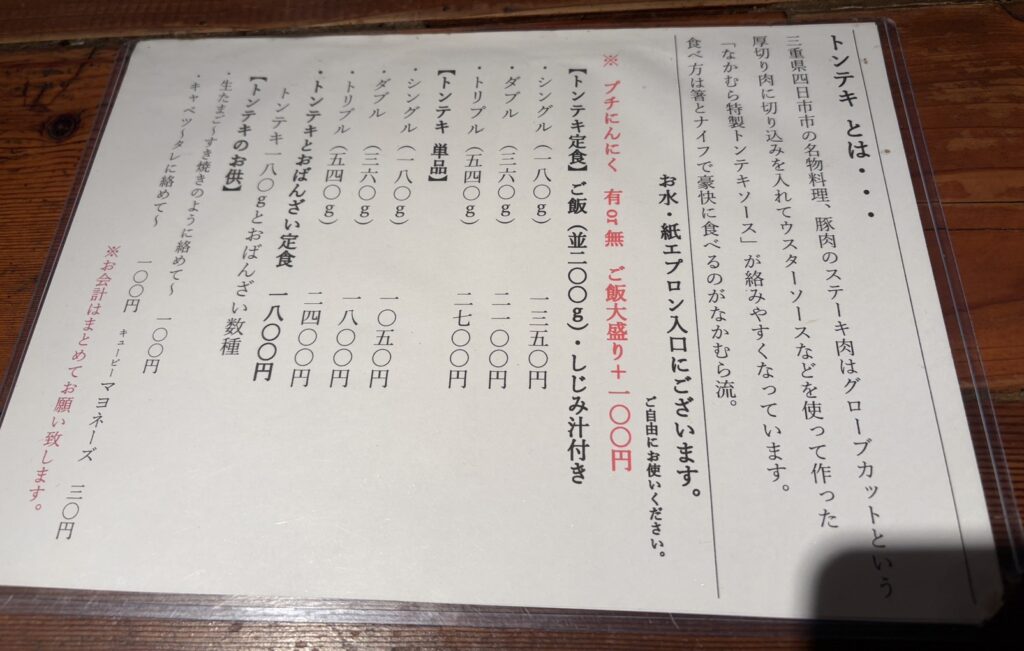 トンテキ とは・・・
三重県四日市市の名物料理、豚肉のステーキ肉はグローブカットという
厚切り肉に切り込みを入れてウスターソースなどを使って作った
「なかむら特製トンテキソース」が絡みやすくなっています。
食べ方は箸とナイフで豪快に食べるのがなかむら流。
お水・紙エプロン入口にございます。
ご自由にお使いください。
※ プチにんにく 有or無 ご飯大盛り＋一〇〇円
【トンテキ定食】ご飯（並二〇〇g）・しじみ汁付き
・シングル（一八〇g） 一三五〇円
・ダブル（三六〇g） 二一〇〇円
・トリプル（五四〇g） 二七〇〇円
【トンテキ 単品】
・シングル（一八〇g） 一〇五〇円
・ダブル（三六〇g） 一八〇〇円
・トリプル（五四〇g） 二四〇〇円
・トンテキとおばんざい定食 一八〇〇円
トンテキ一八〇gとおばんざい数種
【トンテキのお供】
・生たまご～すき焼きのように絡めて～ 一〇〇円
・キャベツ～タレに絡めて～ 一〇〇円 キューピーマヨネーズ 三〇円
※お会計はまとめてお願い致します。